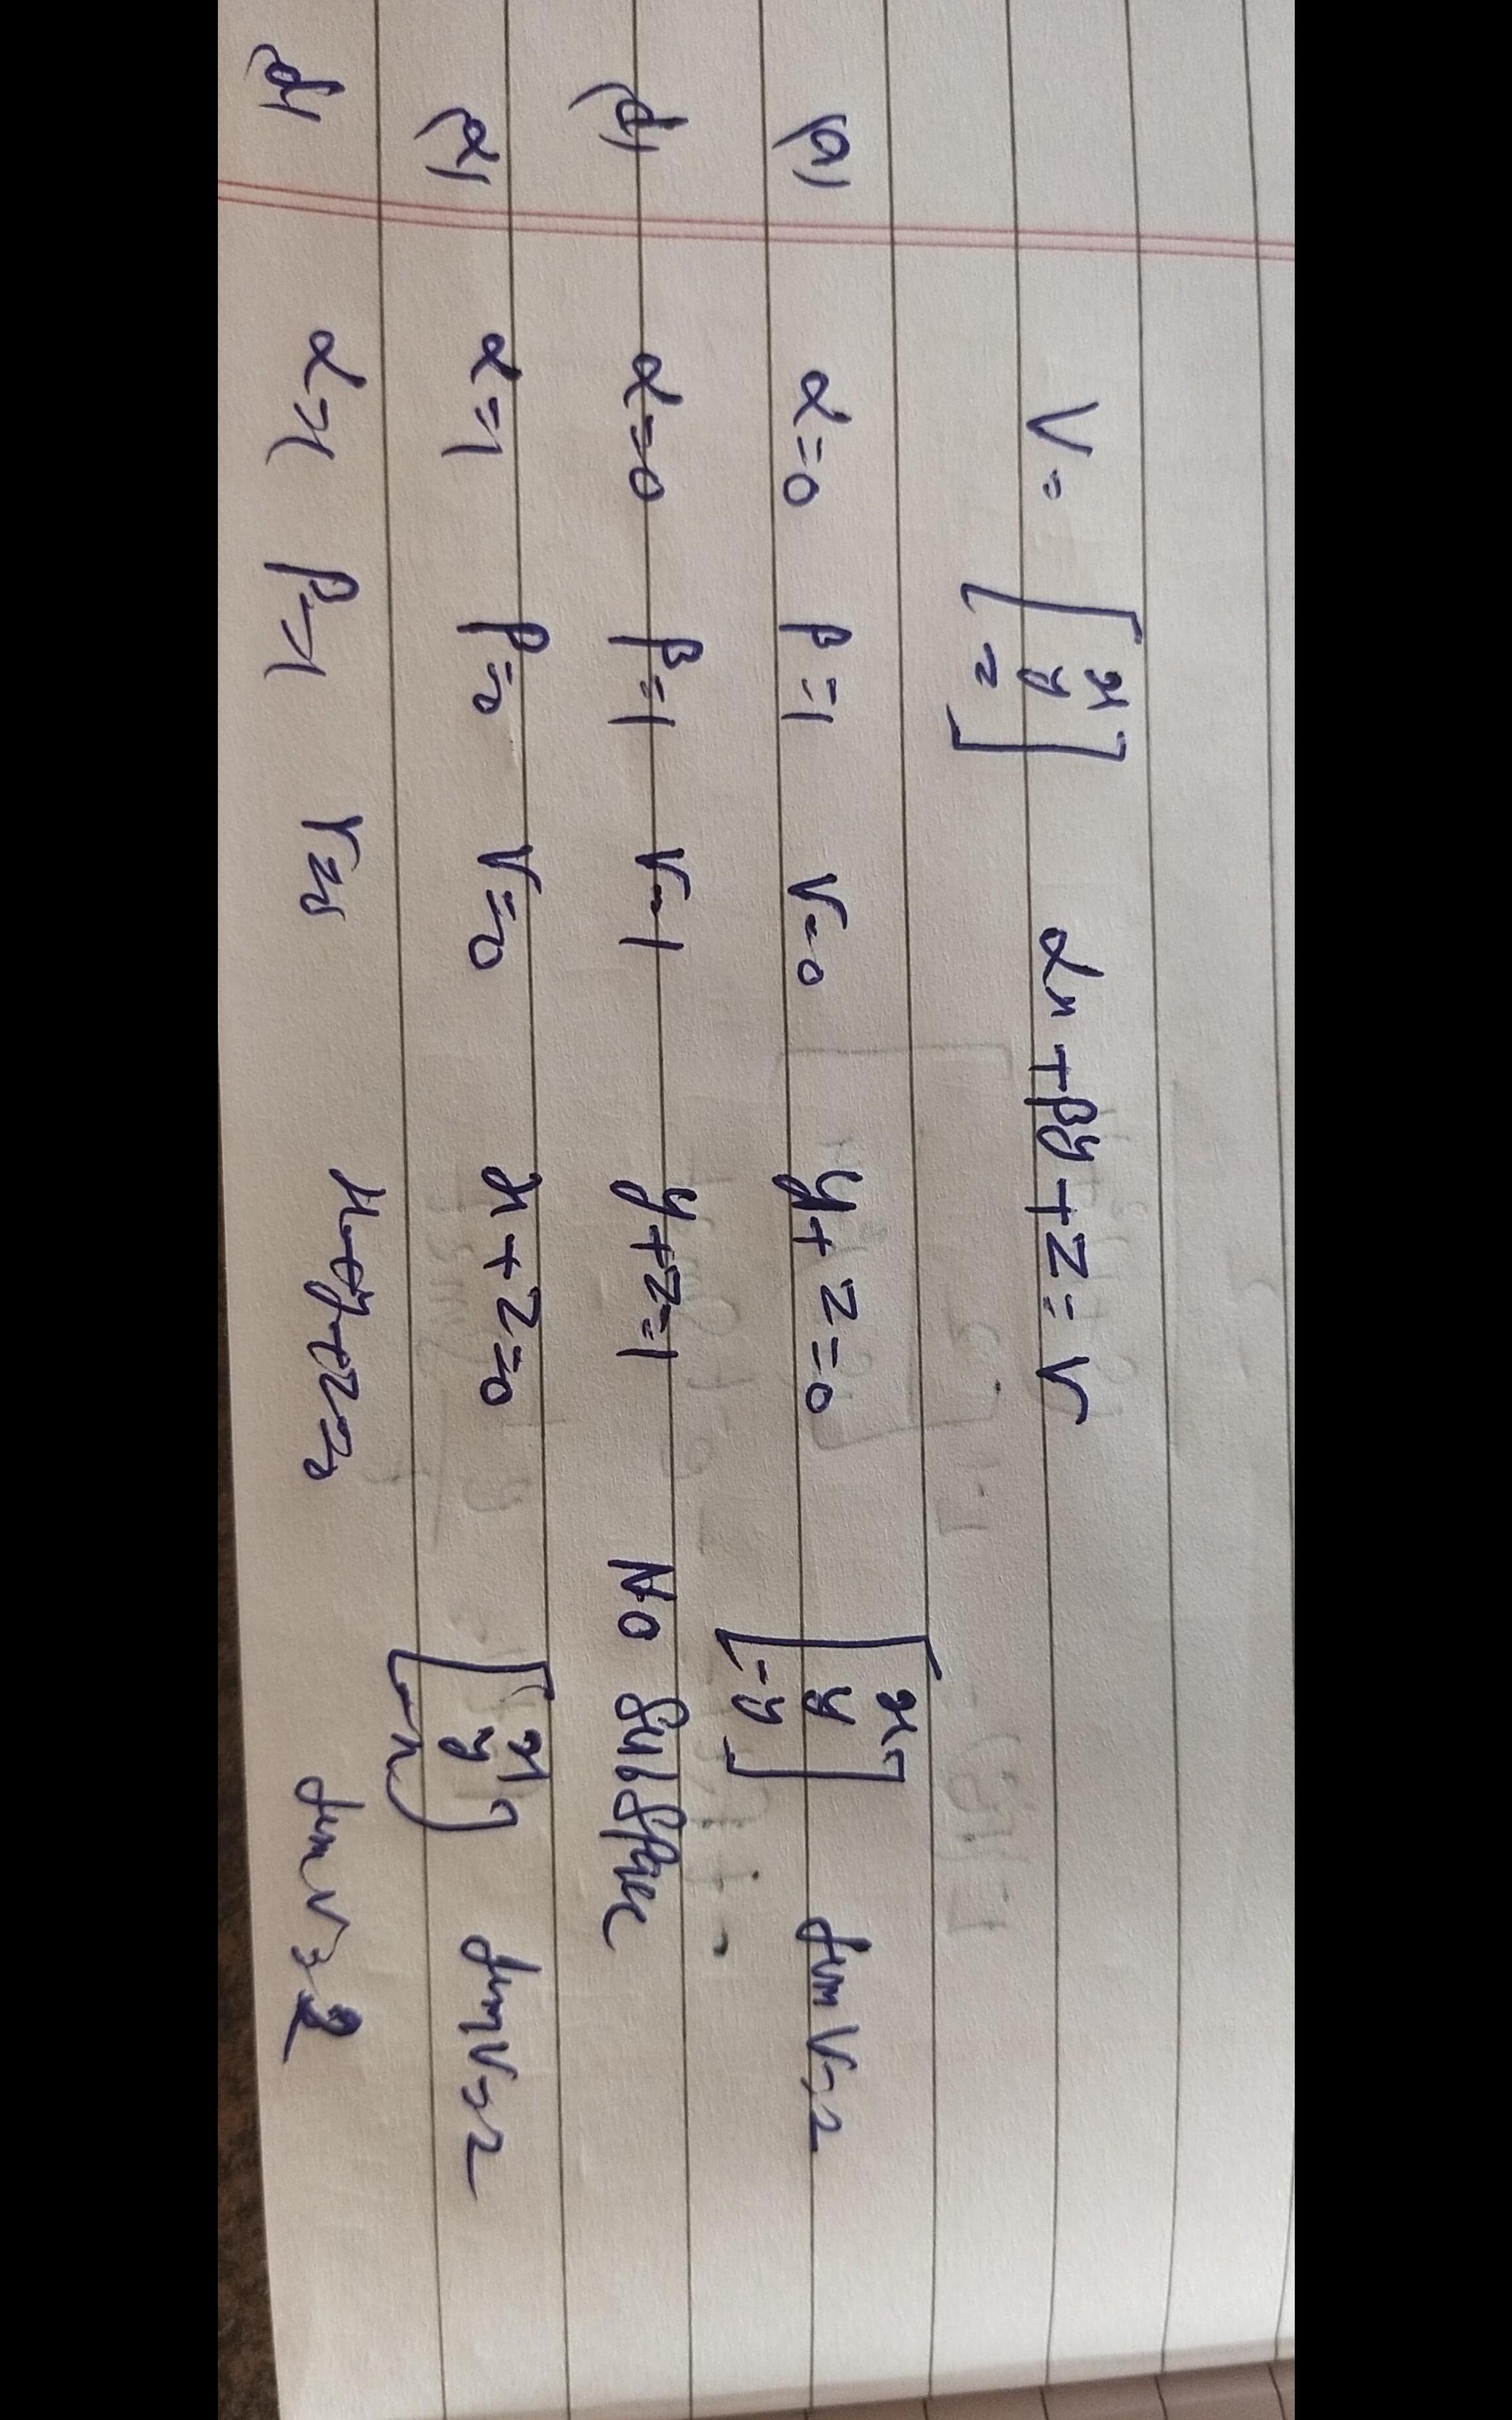 V = [x y z] αx + βy + z = γ
(a) α=0 β=1 γ=0 y+z=0 [x y -y] dim V=2
(b) α=0 β=1 γ=1 y+z=1 No SubSpace
(c) α=1 β=0 γ=0 x+z=0 [x y -x] dim V=2
(d) α=1 β=1 γ=0 x+y+z=0 dim V=2